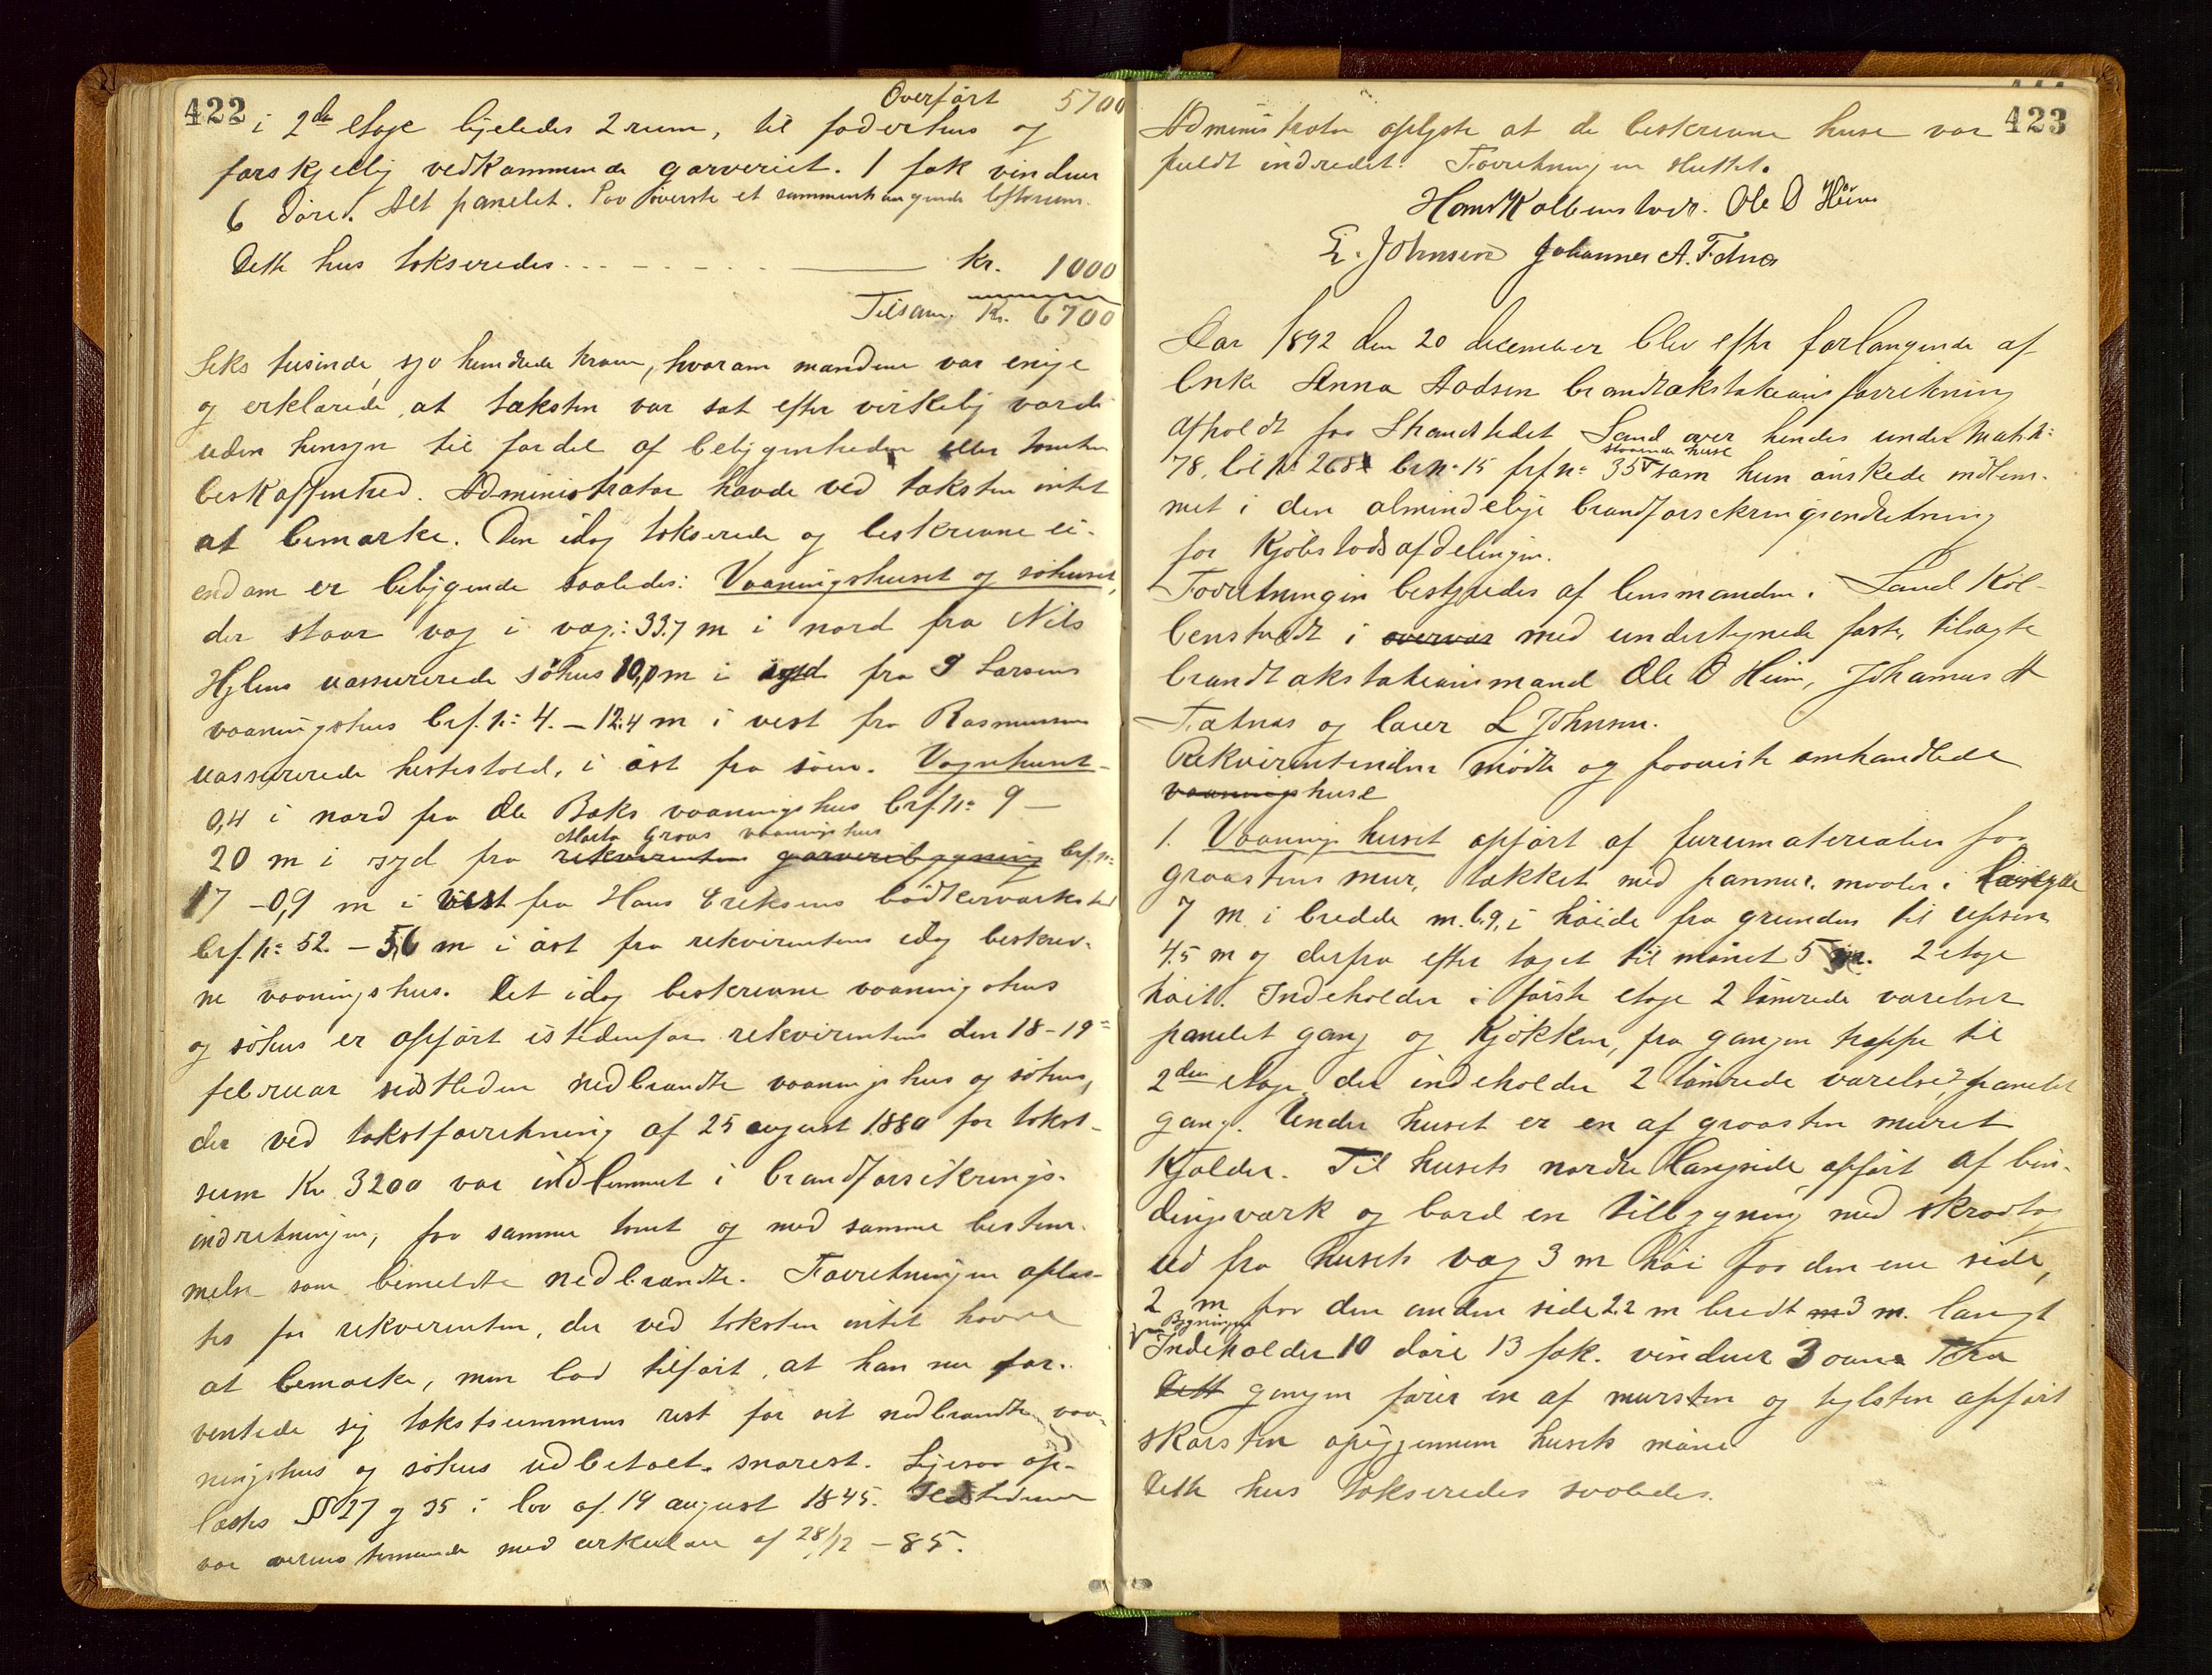 422
Overført 5700
i 2den etage ligeledes 2 rum, til foderhus og
forskjellig vedkommende garveriet. 1 fak vinduer
6 döre. Alt panelet. Paa överste et sammenhængende loftsrum.
Dette hus takseredes - - - - - Kr. 1000
Tilsam. Kr. 6700
Seks tusinde, syv hundrede kroner, hvorom mændene var enige
og erklærede, at taksten var sat efter virkelig værdi
uden hensyn til fordel af beliggenheden eller tomten
beskaffenhed. Administrator havde ved taksten intet
at bemærke. Den idag takserede og beskrevne ei-
endom er beliggende saaledes: Vaaningshuset og söhuset,
der staar væg i væg: 33.7 m i nord fra Nils
Hylens uassurerede söhus 10,0 m i syd fra I Larsens
vaaningshus brf. n: 4. - 12.4 m i vest fra Rasmussens
uassurerede hestestald, i öst fra söen. Vognhuset
0,4 i nord fra Ole Baks vaaningshus brf. n: 9 -
20 m i syd fra rekvirenten garveribygning Marta Graas vaaningshus brf. n:
17 - 0,9 m i vest fra Hans Eriksens bödkerværksted
brf. n: 52. - 5,6 m i öst fra rekvirentens idag beskrev-
ne vaaningshus. Det idag beskrevne vaaningshus
og söhus er opfört istedenfor rekvirentens den 18-19de
februar sidstleden nedbrændte vaaningshus og söhus,
der ved takstforretning af 25 august 1880 for takst-
sum Kr 3200 var indlemmet i brandforsikrings-
indretningen, paa samme tomt og med samme bestem-
melse som bemeldte nedbrændte. Forretningen oplæs-
tes for rekvirenten, der ved taksten intet havde
at bemærke, men lod tilfört, at han nu for-
ventede sig takstsummens rest for sit nedbrændte vaa-
ningshus og söhus udbetalt snarest. Ligesaa op-
læstes §§ 27 og 35 i lov af 19 august 1845. Ildstederne
var overensstemmende med cirkulære af 28/12 - 85.
423
Administrator oplyste at de beskrevne huse var
fuldt indredet. Forretningen sluttet.
Hans Kolbenstvedt. Ole O Heim
E. Johnsen Johannes A. Fatnes
Aar 1892 den 20 december blev efter forlangende af
Enke Anna Aadsen brandtakstationsforretning
afholdt paa Strandstedet Sand over hendes under Matr. n:
78, löb n: 268 br n: 15 brf n: 35 staaende huse som hun önskede indlem-
met i den almindelige brandforsikringsindretning
for Kjöbstadsafdelingen.
Forretningen bestyredes af lensmanden i Sand Kol-
benstvedt i overvær med undertegnede faste, tilsagte
brandtakstationsmænd Ole O Heim, Johannes A
Fatnes og laver L Johnsen.
Rekvirentinden mödte og paaviste omhandlede
vaaningshuse
1. Vaaningshuset opfört af furumaterialier paa
graastens mur, tækket med panner, maaler i længde
7 m. i bredde m. 6.9, i höide fra grunden til ufsen
4.5 m og derfra efter taget til mönet 5 m. 2 etage
höit. Indeholder i förste etage 2 tömrede værelser
panelet gang og Kjökken, fra gangen trappe til
2den etage, der indeholder 2 tömrede værelser, panelet
gang. Under huset er en af graasten muret
Kjelder. Til husets nordre langside opfört af bin-
dingsværk og bord en tilbygning med skraatag
ud fra husets væg 3 m höi paa den ene side,
2 m paa den anden side 2.2 m bredt m 3 m. langt
Bygningen
Indeholder 10 döre 13 fak. vinduer 3 ovne Fra
dette gangen förer en af mursten og teglsten opfört
skorsten opigjennem husets möne
Dette hus takseredes saaledes.